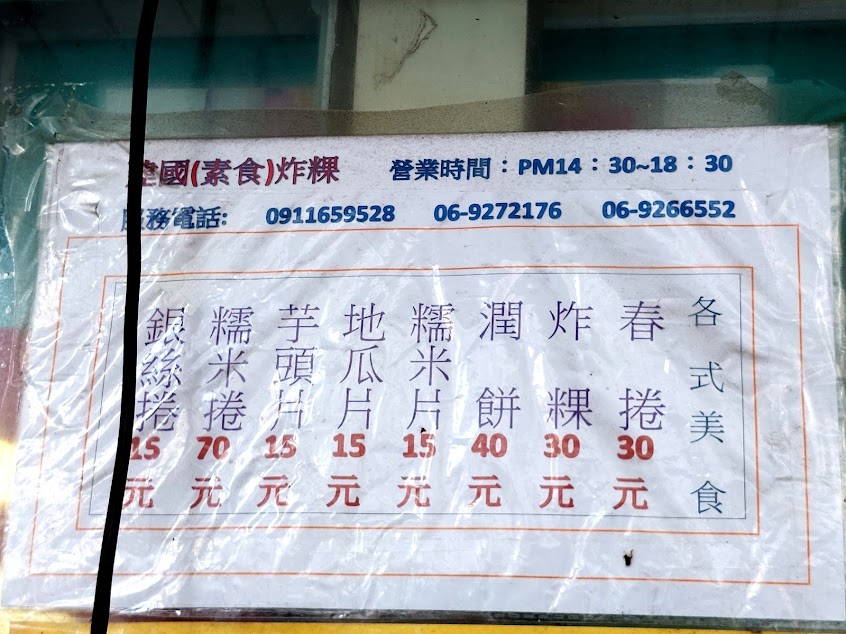 建國(素食)炸粿 營業時間：PM14：30~18：30
服務電話: 0911659528 06-9272176 06-9266552
各式美食
春捲30元
炸粿30元
潤餅40元
糯米片15元
地瓜片15元
芋頭片15元
糯米捲70元
銀絲捲15元